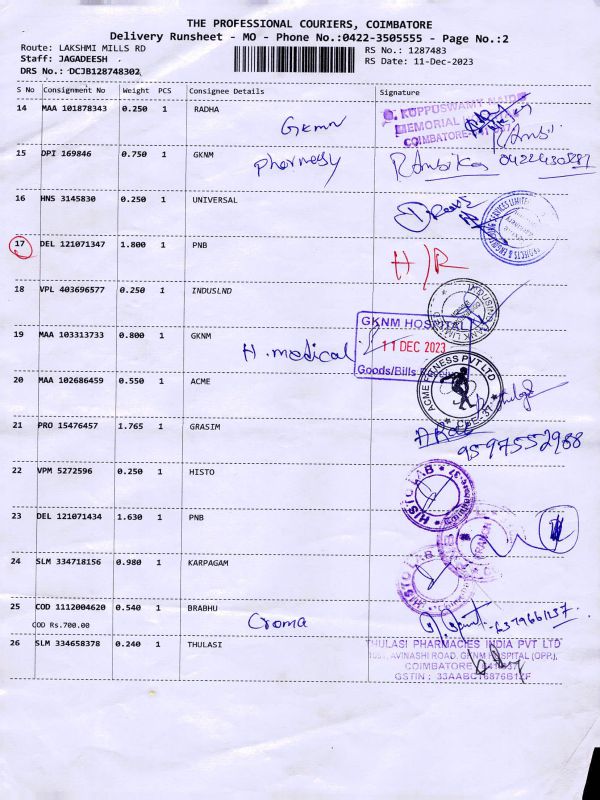 THE PROFESSIONAL COURIERS, COIMBATORE
Delivery Runsheet - MO - Phone No.:0422-3505555 - Page No.:2
Route: LAKSHMI MILLS RD
RS No.: 1287483
Staff: JAGADEESH
RS Date: 11-Dec-2023
DRS No.: DCJB128748302
S No Consignment No Weight PCS Consignee Details Signature
14 MAA 101878343 0.250 1 RADHA
GKMN
KUPPUSWAMY NAIDU
MEMORIAL
COIMBATORE
15 DPI 169846 0.750 1 GKNM
Pharmacy
16 HNS 3145830 0.250 1 UNIVERSAL
17 DEL 121071347 1.800 1 PNB
H/R
18 VPL 403696577 0.250 1 INDUSLND
19 MAA 103313733 0.800 1 GKNM
H. medical
GKNM HOSPITAL
11 DEC 2023
Goods/Bills
20 MAA 102686459 0.550 1 ACME
ACME FITNESS PVT LTD
21 PRO 15476457 1.765 1 GRASIM
9597552988
22 VPM 5272596 0.250 1 HISTO
HISTO LAB
23 DEL 121071434 1.630 1 PNB
24 SLM 334718156 0.980 1 KARPAGAM
HISTO LAB
25 COD 1112004620 0.540 1 BRABHU
COD Rs.700.00
Croma
26 SLM 334658378 0.240 1 THULASI
THULASI PHARMACIES INDIA PVT LTD
AVINASHI ROAD, GKNM HOSPITAL (OPP.),
COIMBATORE
GSTIN :